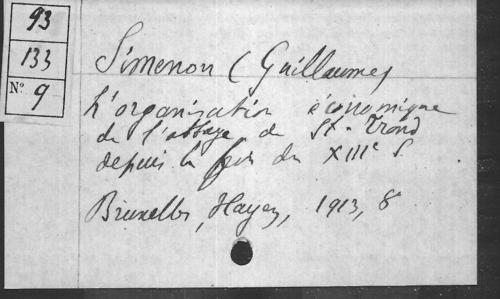 93
133
N° 9
Simenon (Guillaume)
L'organisation économique
de l'abbaye de St-Trond
depuis la fin du XIIIe s.
Bruxelles, Hayez, 1913, 8°